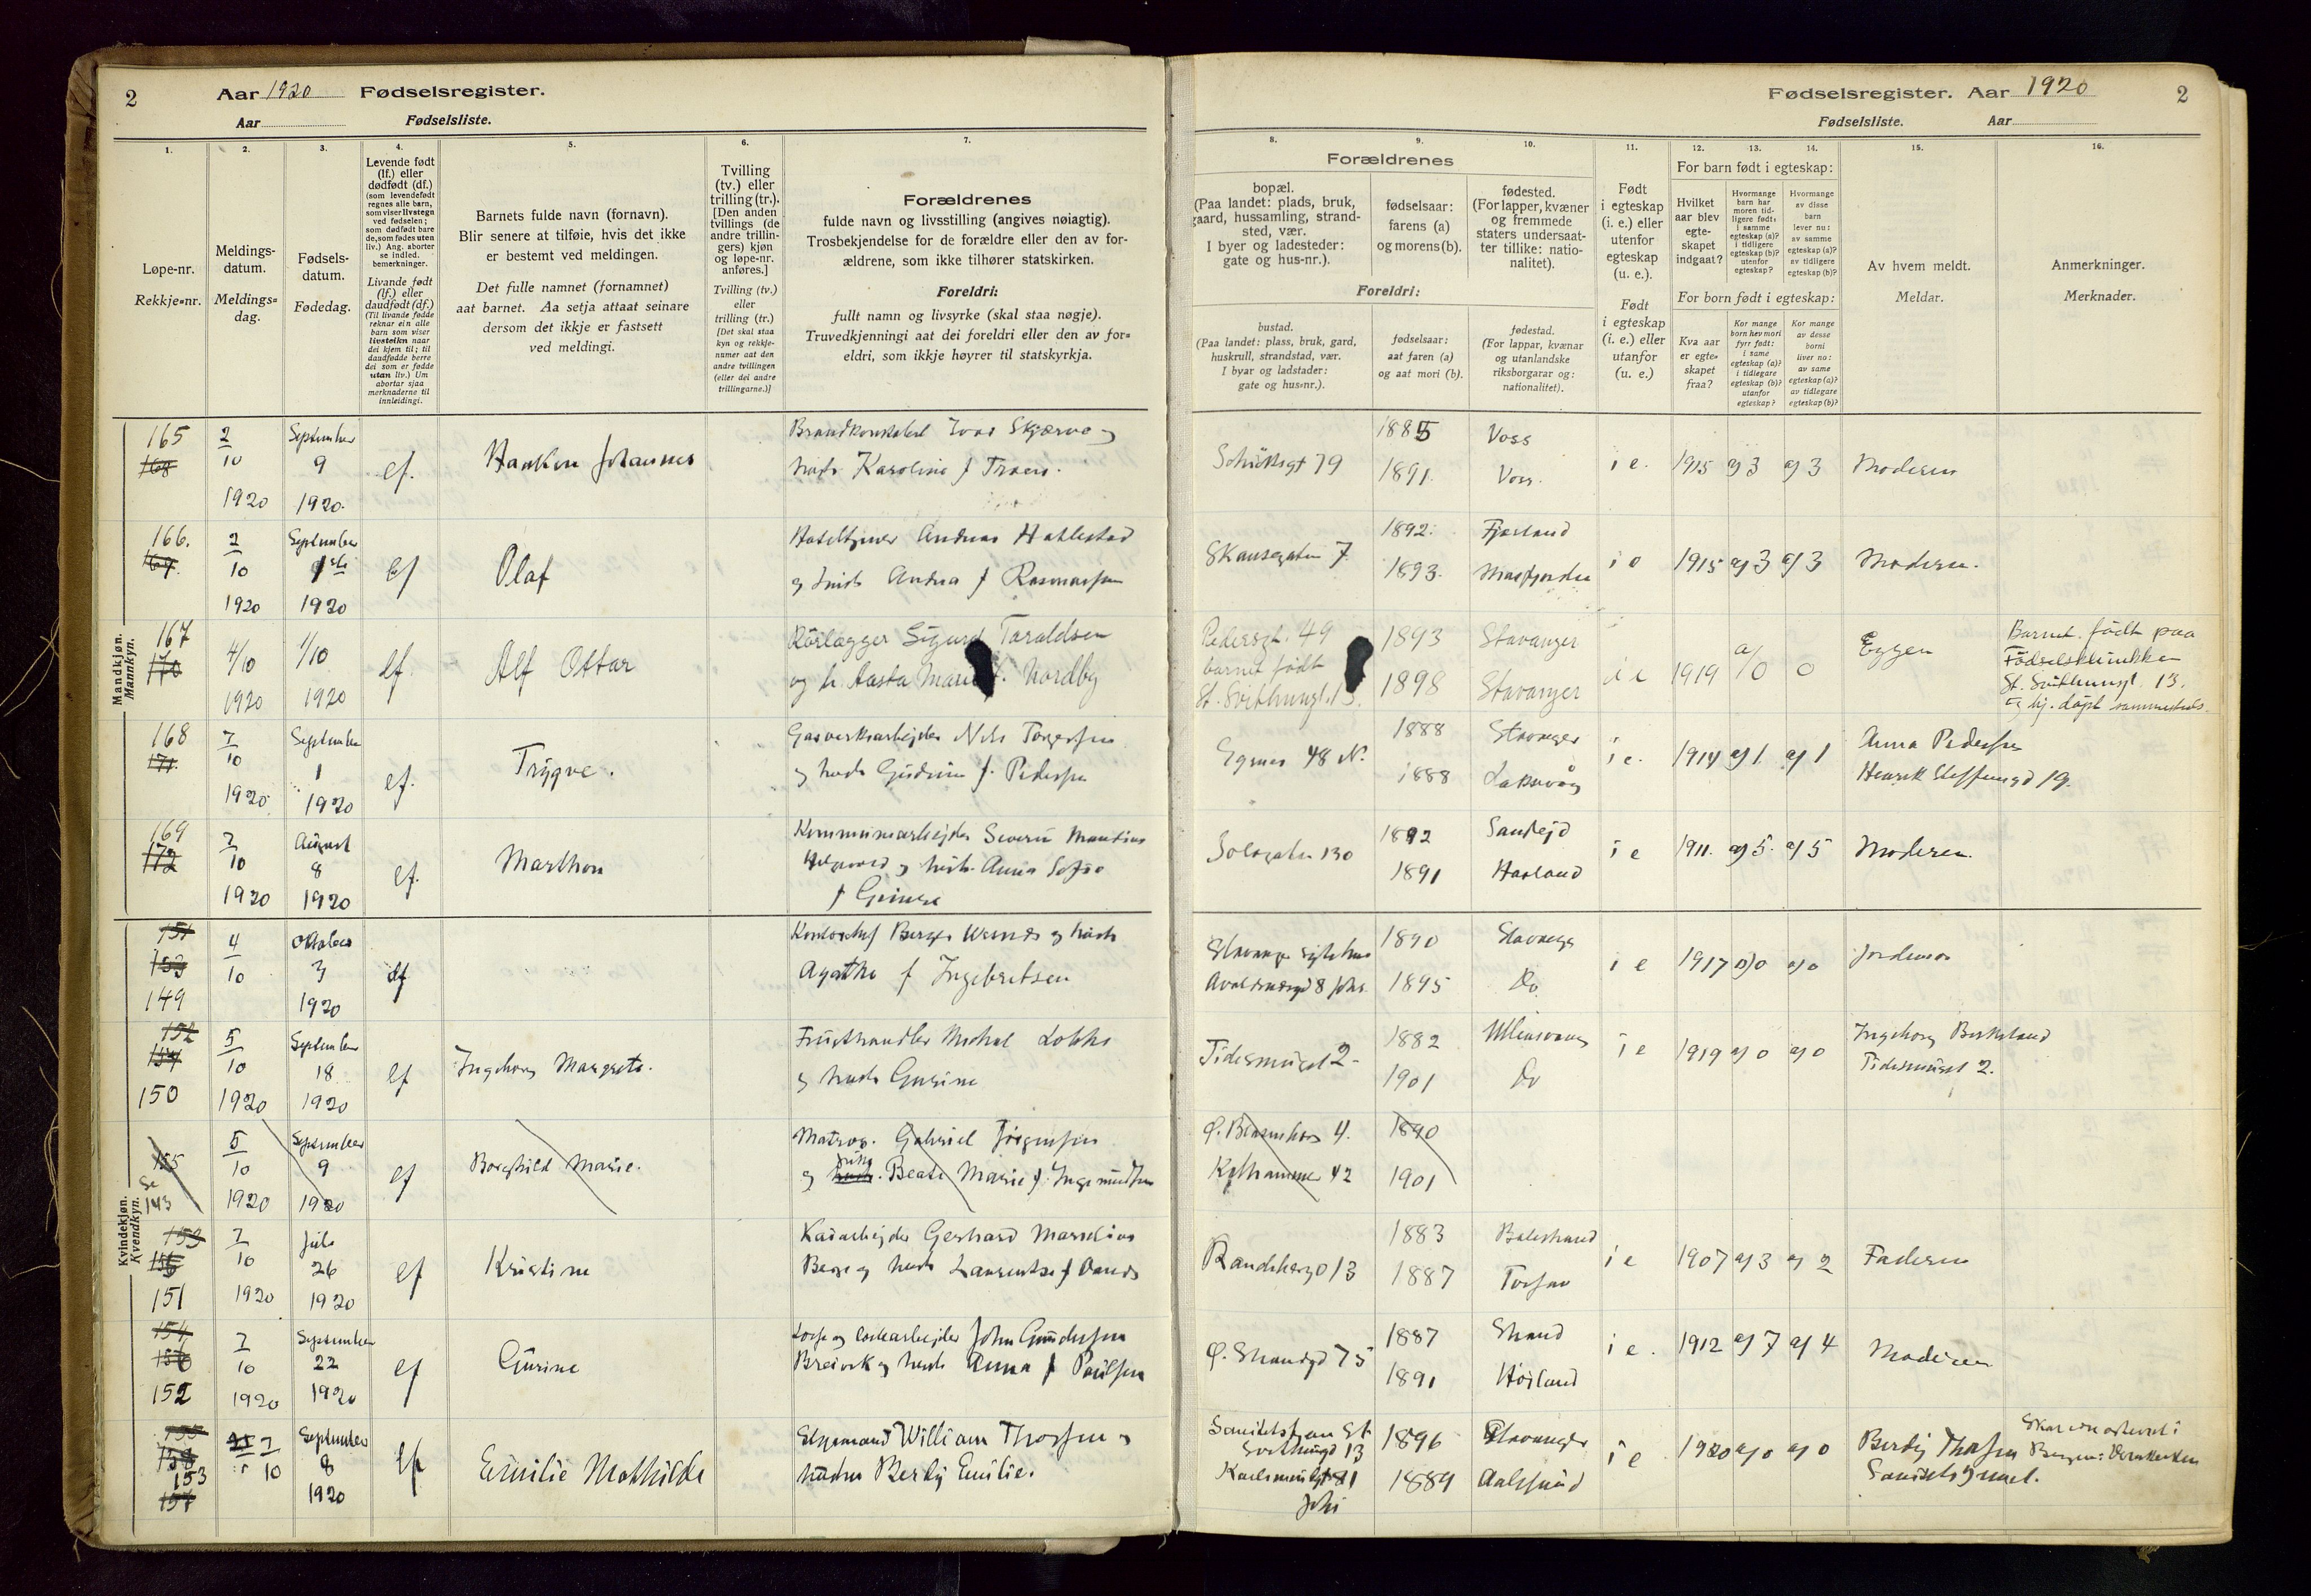 2
Aar 1920 Fødselsregister.
Aar
Fødselsliste.
1.
2.
3.
4.
5.
6.
7.
Løpe-nr.
Rekkje=nr.
Meldings-
datum.
Meldings=
dag.
Fødsels-
datum.
Fødedag.
Levende født
(lf.) eller
dødfødt (df.)
(som levendefødt
regnes alle barn,
som viser livstegn
ved fødselen;
som dødfødt bare
de, som fødes uten
liv.) Ang. aborter
se indled.
bemerkninger.
Livande født
(lf.) eller
daudfødt (df.)
(Til livande fødde
reknar ein alle
barn som viser
livsteikn naar
dei kjem til; til
daudfødde berre
dei som er fødde
utan liv.) Um
abortar sjaa
merknaderne til
innleidingi.
Barnets fulde navn (fornavn).
Blir senere at tilføie, hvis det ikke
er bestemt ved meldingen.
Det fulle namnet (fornamnet)
aat barnet. Aa setja attaat seinare
dersom det ikkje er fastsett
ved meldingi.
Tvilling
(tv.) eller
trilling (tr.).
[Den anden
tvillings (de
andre trillin-
gers) kjøn
og løpe-nr.
anføres.]
Tvilling (tv.)
eller
trilling (tr.)
[Det skal staa
kyn og rekkje-
numer aat den
andre tvillingen
(eller dei andre
trillingarne.)]
Forældrenes
fulde navn og livsstilling (angives nøiagtig).
Trosbekjendelse for de forældre eller den av for-
ældrene, som ikke tilhører statskirken.
Foreldri:
fullt namn og livsyrke (skal staa nøgje).
Truvedkjenningi aat dei foreldri eller den av for=
eldri, som ikkje høyrer til statskyrkja.
Mandkjøn.
Mannkyn.
165
168
2
10
1920
September
9
1920.
lf.
Haakon Johannes
Brandkonstabel Ivar Skjerve og
hustr. Karoline f Troen.
166.
169.
2
10
1920
September
1ste
1920
lf
Olaf
Andreas Hatlestad
og hustr. Andrea f Rasmussen
167
170
4/10
1920
1/10
1920
lf.
Alf Ottar
Rörlægger Sigurd Taraldsen
og h. Aasta Marie f. Nordby
168
171.
7
10
1920
September
1
1920
lf.
Trygve.
Gasverksarbejder Nils Torgersen
og hustr Gudrun f. Pedersen
169
172
7
10
1920
August
8
1920
lf.
Marthon
Kommunearbejder Severin Mandius
og hustr. Anna Sofie
f Grimse
Kvindekjøn.
Kvendkyn.
151
153
149
4
10
Oktober
3
1920
df
Kontorchef Berge og hustr
Agathe f Ingebretsen
152
154
150
5
10
1920
September
18
1920
lf
Ingeborg Margrete.
Frugthandler Michal Lothe
og hustr Gurine
155
Se
143
5
10
1920
September
9
1920
lf
Borghild Marie.
Matros. Gabriel Jörgensen
og pike hustr. Beate Marie f. Ingemundsen
153
156
151
7
10
1920
Juli
26
1920
lf
Kristine
Kaiarbejder Gerhard Mandius
Berge og hustr Laurentse f
154
157
152
7
10
1920
September
22
1920
lf
Gurine
Losse og lastearbejder John Gundersen
Breivik og hustr Anna f Paulsen
155
158
153
157
7
10
September
8
1920
lf
Emilie Mathilde
Styrmand William Thorsen og
hustru Berdy Emilie.
Fødselsregister. Aar 1920
2
Fødselsliste.
Aar
8.
9.
10.
11.
12.
13.
14.
15.
16.
Forældrenes
bopæl.
(Paa landet: plads, bruk,
gaard, hussamling, strand-
sted, vær.
I byer og ladesteder:
gate og hus-nr.).
fødselsaar:
farens (a)
og morens (b).
fødested.
(For lapper, kvæner
og fremmede
staters undersaat-
ter tillike: natio-
nalitet).
Foreldri:
bustad.
(Paa landet: plass, bruk, gard,
huskrull, strandstad, vær.
I byar og ladstader:
gate og hus=nr.).
fødselsaar:
aat faren (a)
og aat mori (b).
fødestad.
(For lappar, kvænar
og utanlandske
riksborgarar og:
nationalitet).
Født
i egteskap
(i. e.) eller
utenfor
egteskap
(u. e.).
Født
i egteskap
(i. e.) eller
utanfor
(u. e.)
For barn født i egteskap:
Hvilket
aar blev
egte-
skapet
indgaat?
Hvormange
barn har
moren tid-
ligere født:
i samme
egteskap (a)?
i tidligere
egteskap (b)?
utenfor
egteskap?
Hvormange
av disse
barn
lever nu:
av samme
egteskap (a)?
av tidligere
egteskap (b)?
For born født i egteskap:
Kva aar
er egte=
skapet
fraa?
Kor mange
born hev mori
fyrr født:
i same
egteskap (a)?
i tidlegare
egteskap (b)?
utanfor
egteskap?
Kor mange
av desse
borni
liver no:
av same
egteskap (a)?
av tidlegare
egteskap (b)?
Av hvem meldt.
Meldar.
Anmerkninger.
Merknader.
79
1885
1891.
Voss
Voss.
i e.
1915 a) 3 a) 3
Moderen
Skansegaten 7.
1892.
1893.
Fjærland
Masfjorden
i e
1915 a) 3 a) 3
Moderen.
Pedersgt. 49
barnet født
St. Svithunsgt. 13.
1893
1898
Stavanger
Stavanger
i e
1919 a/0 0
Barnet. født paa
Fødselsklinikken
St. Svithunsgt. 13.
og hj. døpt sammesteds.
Egenes 48 N.
1888
1888
Stavanger
Laksevåg
i e.
1914 a) 1. a) 1
Anna Pedersen
Henrik Steffensgd 19.
Solagaten 130
1892
1891
Sandeid
Haaland
i e
1911. a) 5. a) 5
Moderen.
Stavanger sykehus
Avaldsnesgd 8
1890
1895
Stavanger
Do.
i e
1917 a) 0 a) 0
Jordmor
Tidemansgt 2-
1882
1901
Ullensvang
Do
i e
1919 a) 0 a) 0
Ingeborg Birkeland
Tidemansgt 2.
4.
42
1890
1901
Randabergd 13
1883
1887
Balestrand
i e
1907 a) 3 a) 2
Faderen
Ø. Strandgd 75
1887
1891
Strand
Høiland
i e.
1912 a) 7 a) 4
Moderen
13
1896
1889
Stavanger
Aalesund
i e
1920 a) 0 a) 0
Berdy Thorsen